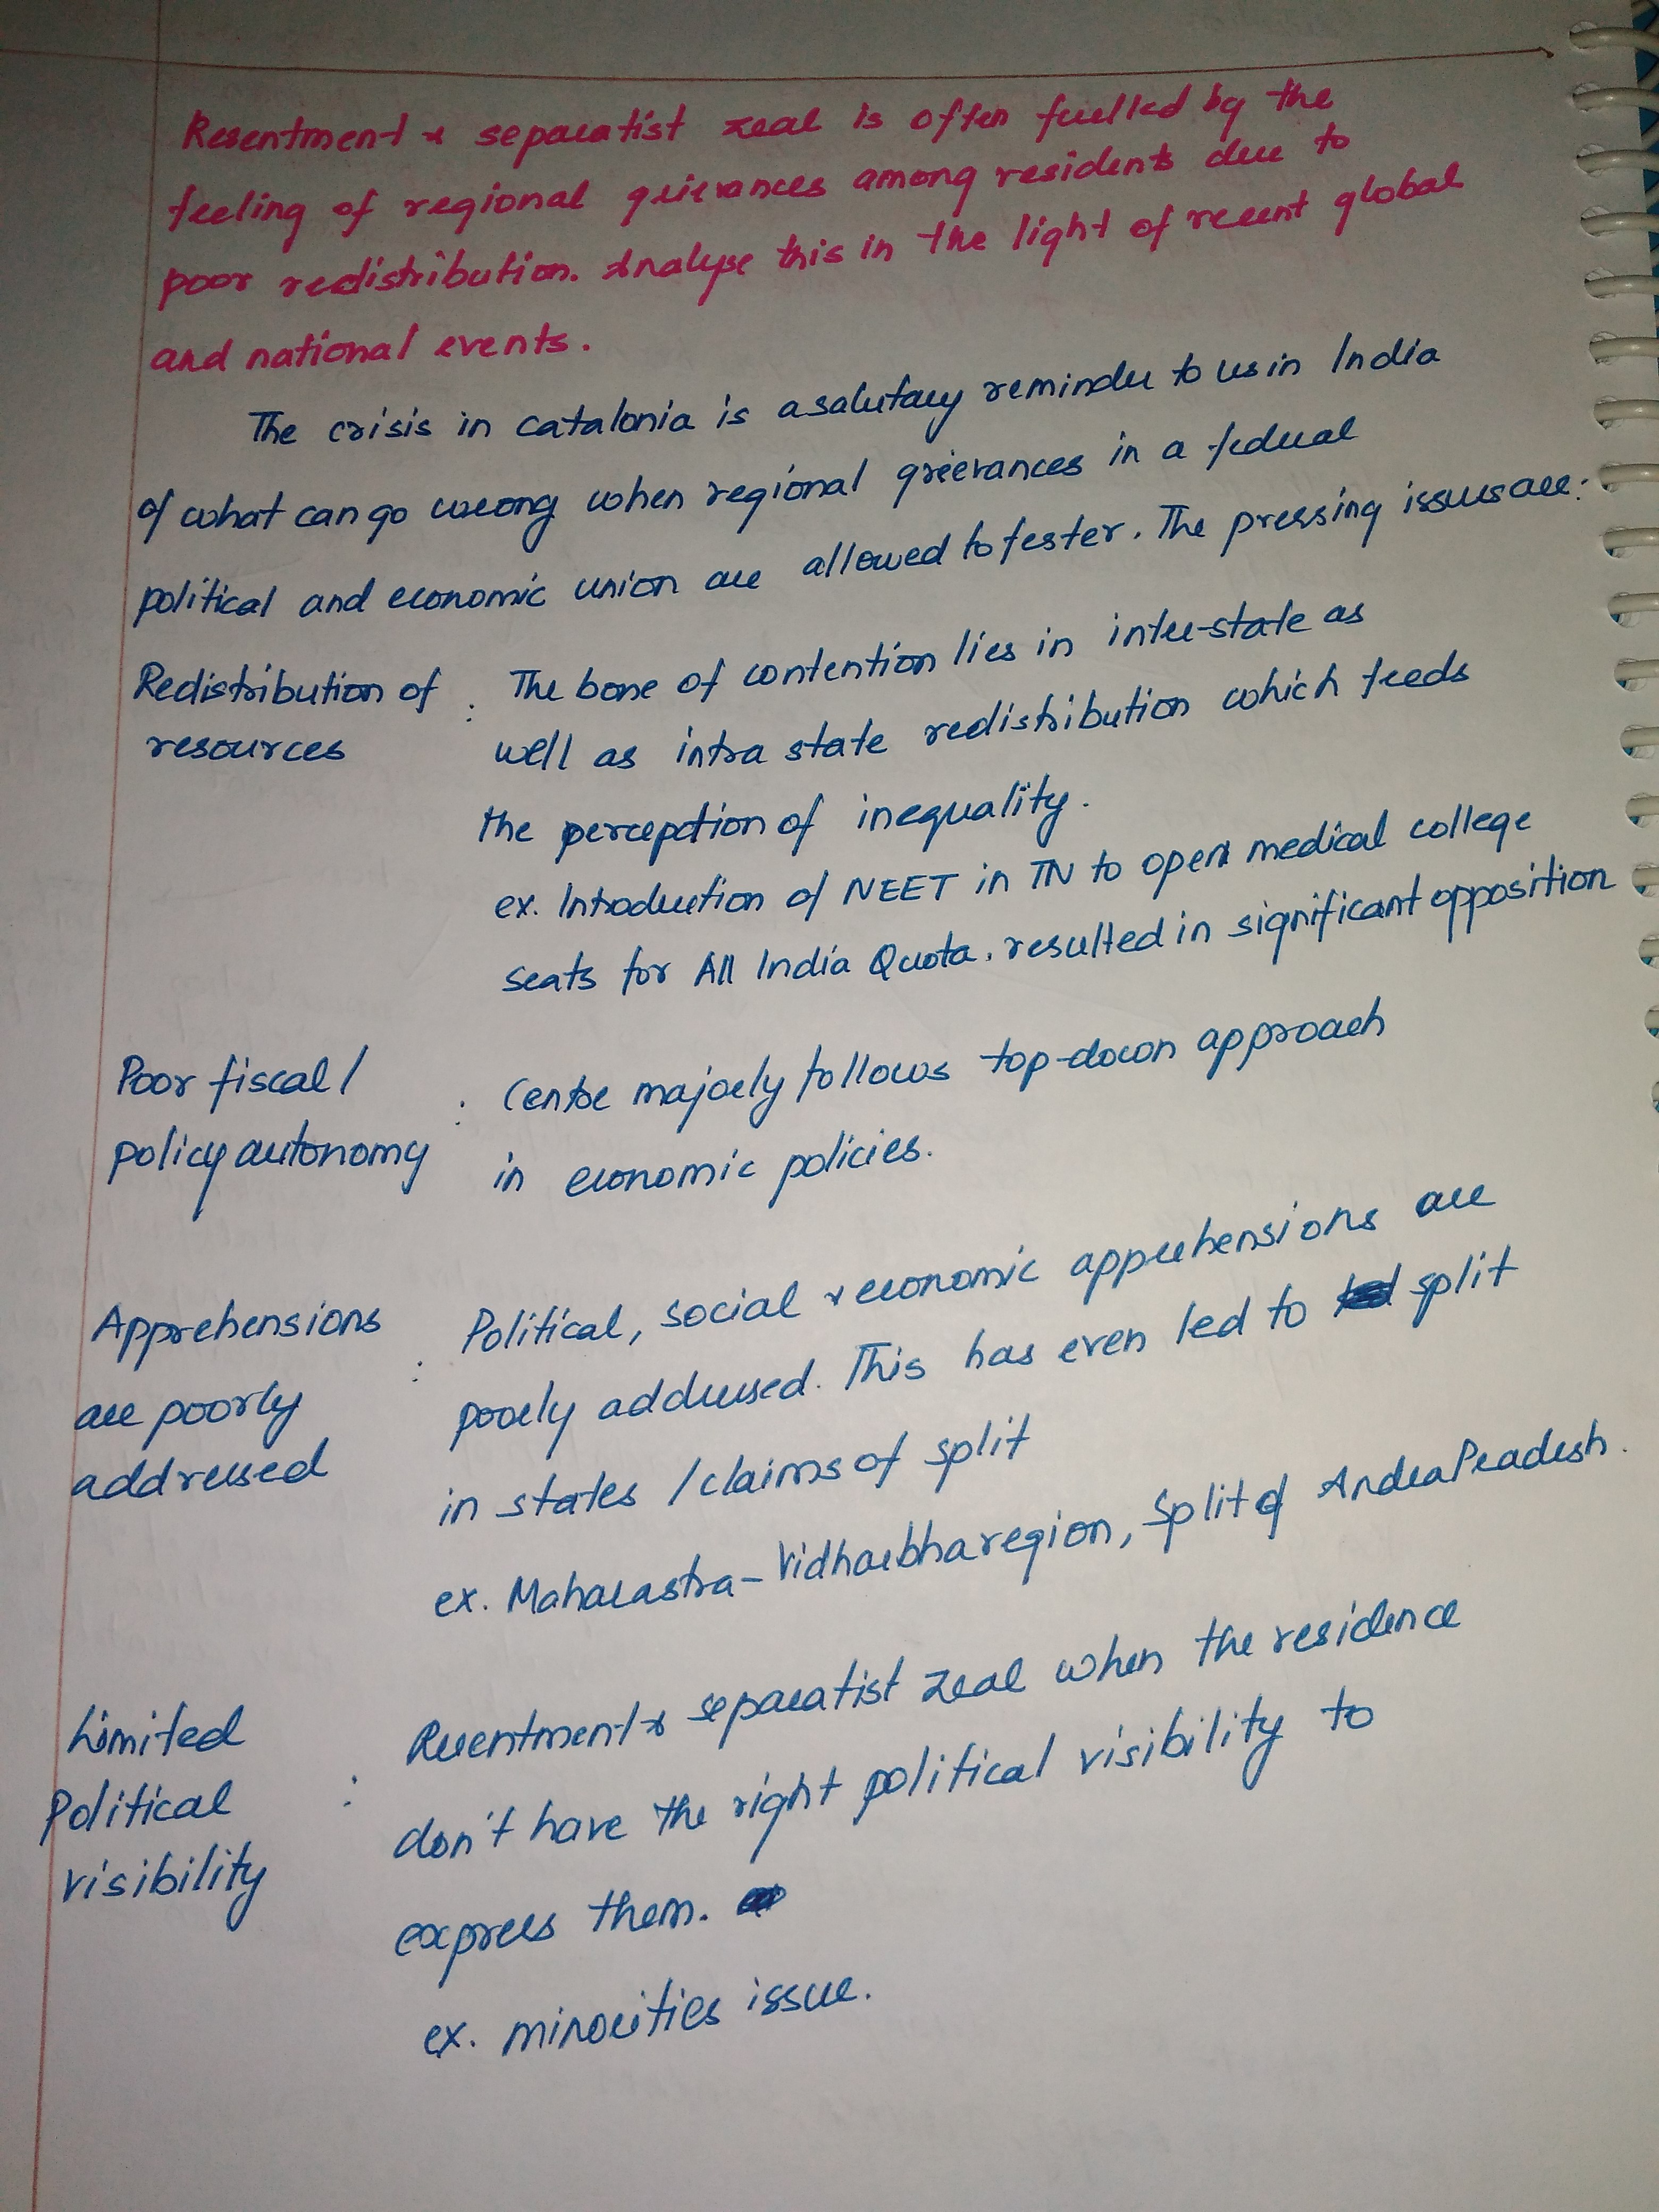 Resentment & separatist zeal is often fuelled by the
feeling of regional grievances among residents due to
poor redistribution. Analyse this in the light of recent global
and national events.
The crisis in catalonia is a salutary reminder to us in India
of what can go wrong when regional grievances in a federal
political and economic union are allowed to fester. The pressing issues are:
Redistribution of : The bone of contention lies in inter-state as
resources well as intra state redistribution which feeds
the perception of inequality.
ex. Introduction of NEET in TN to open medical college
seats for All India Quota, resulted in significant opposition
Poor fiscal / : Centre majorly follows top-down approach
policy autonomy in economic policies.
Apprehensions : Political, social & economic apprehensions are
are poorly poorly addressed. This has even led to split
addressed in states / claims of split
ex. Maharastra - Vidharbha region, split of Andra Pradesh.
Limited : Resentment & separatist zeal when the residence
Political don't have the right political visibility to
visibility express them.
ex. minorities issue.